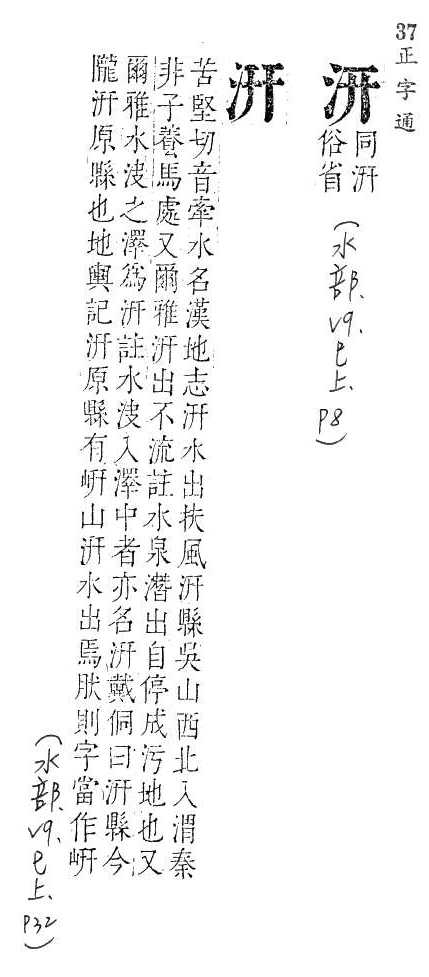 37正字通
㳎
同汧
俗省
(水部.v9.巳上.P8)
汧
苦堅切音牽水名漢地志汧水出扶風汧縣吳山西北入渭秦
非子養馬處又爾雅汧出不流註水泉潛出自停成污地也又
爾雅水決之澤為汧註水決入澤中者亦名汧戴侗曰汧縣今
隴汧原縣也地輿記汧原縣有岍山汧水出焉然則字當作岍
(水部.v9.巳上.P32)